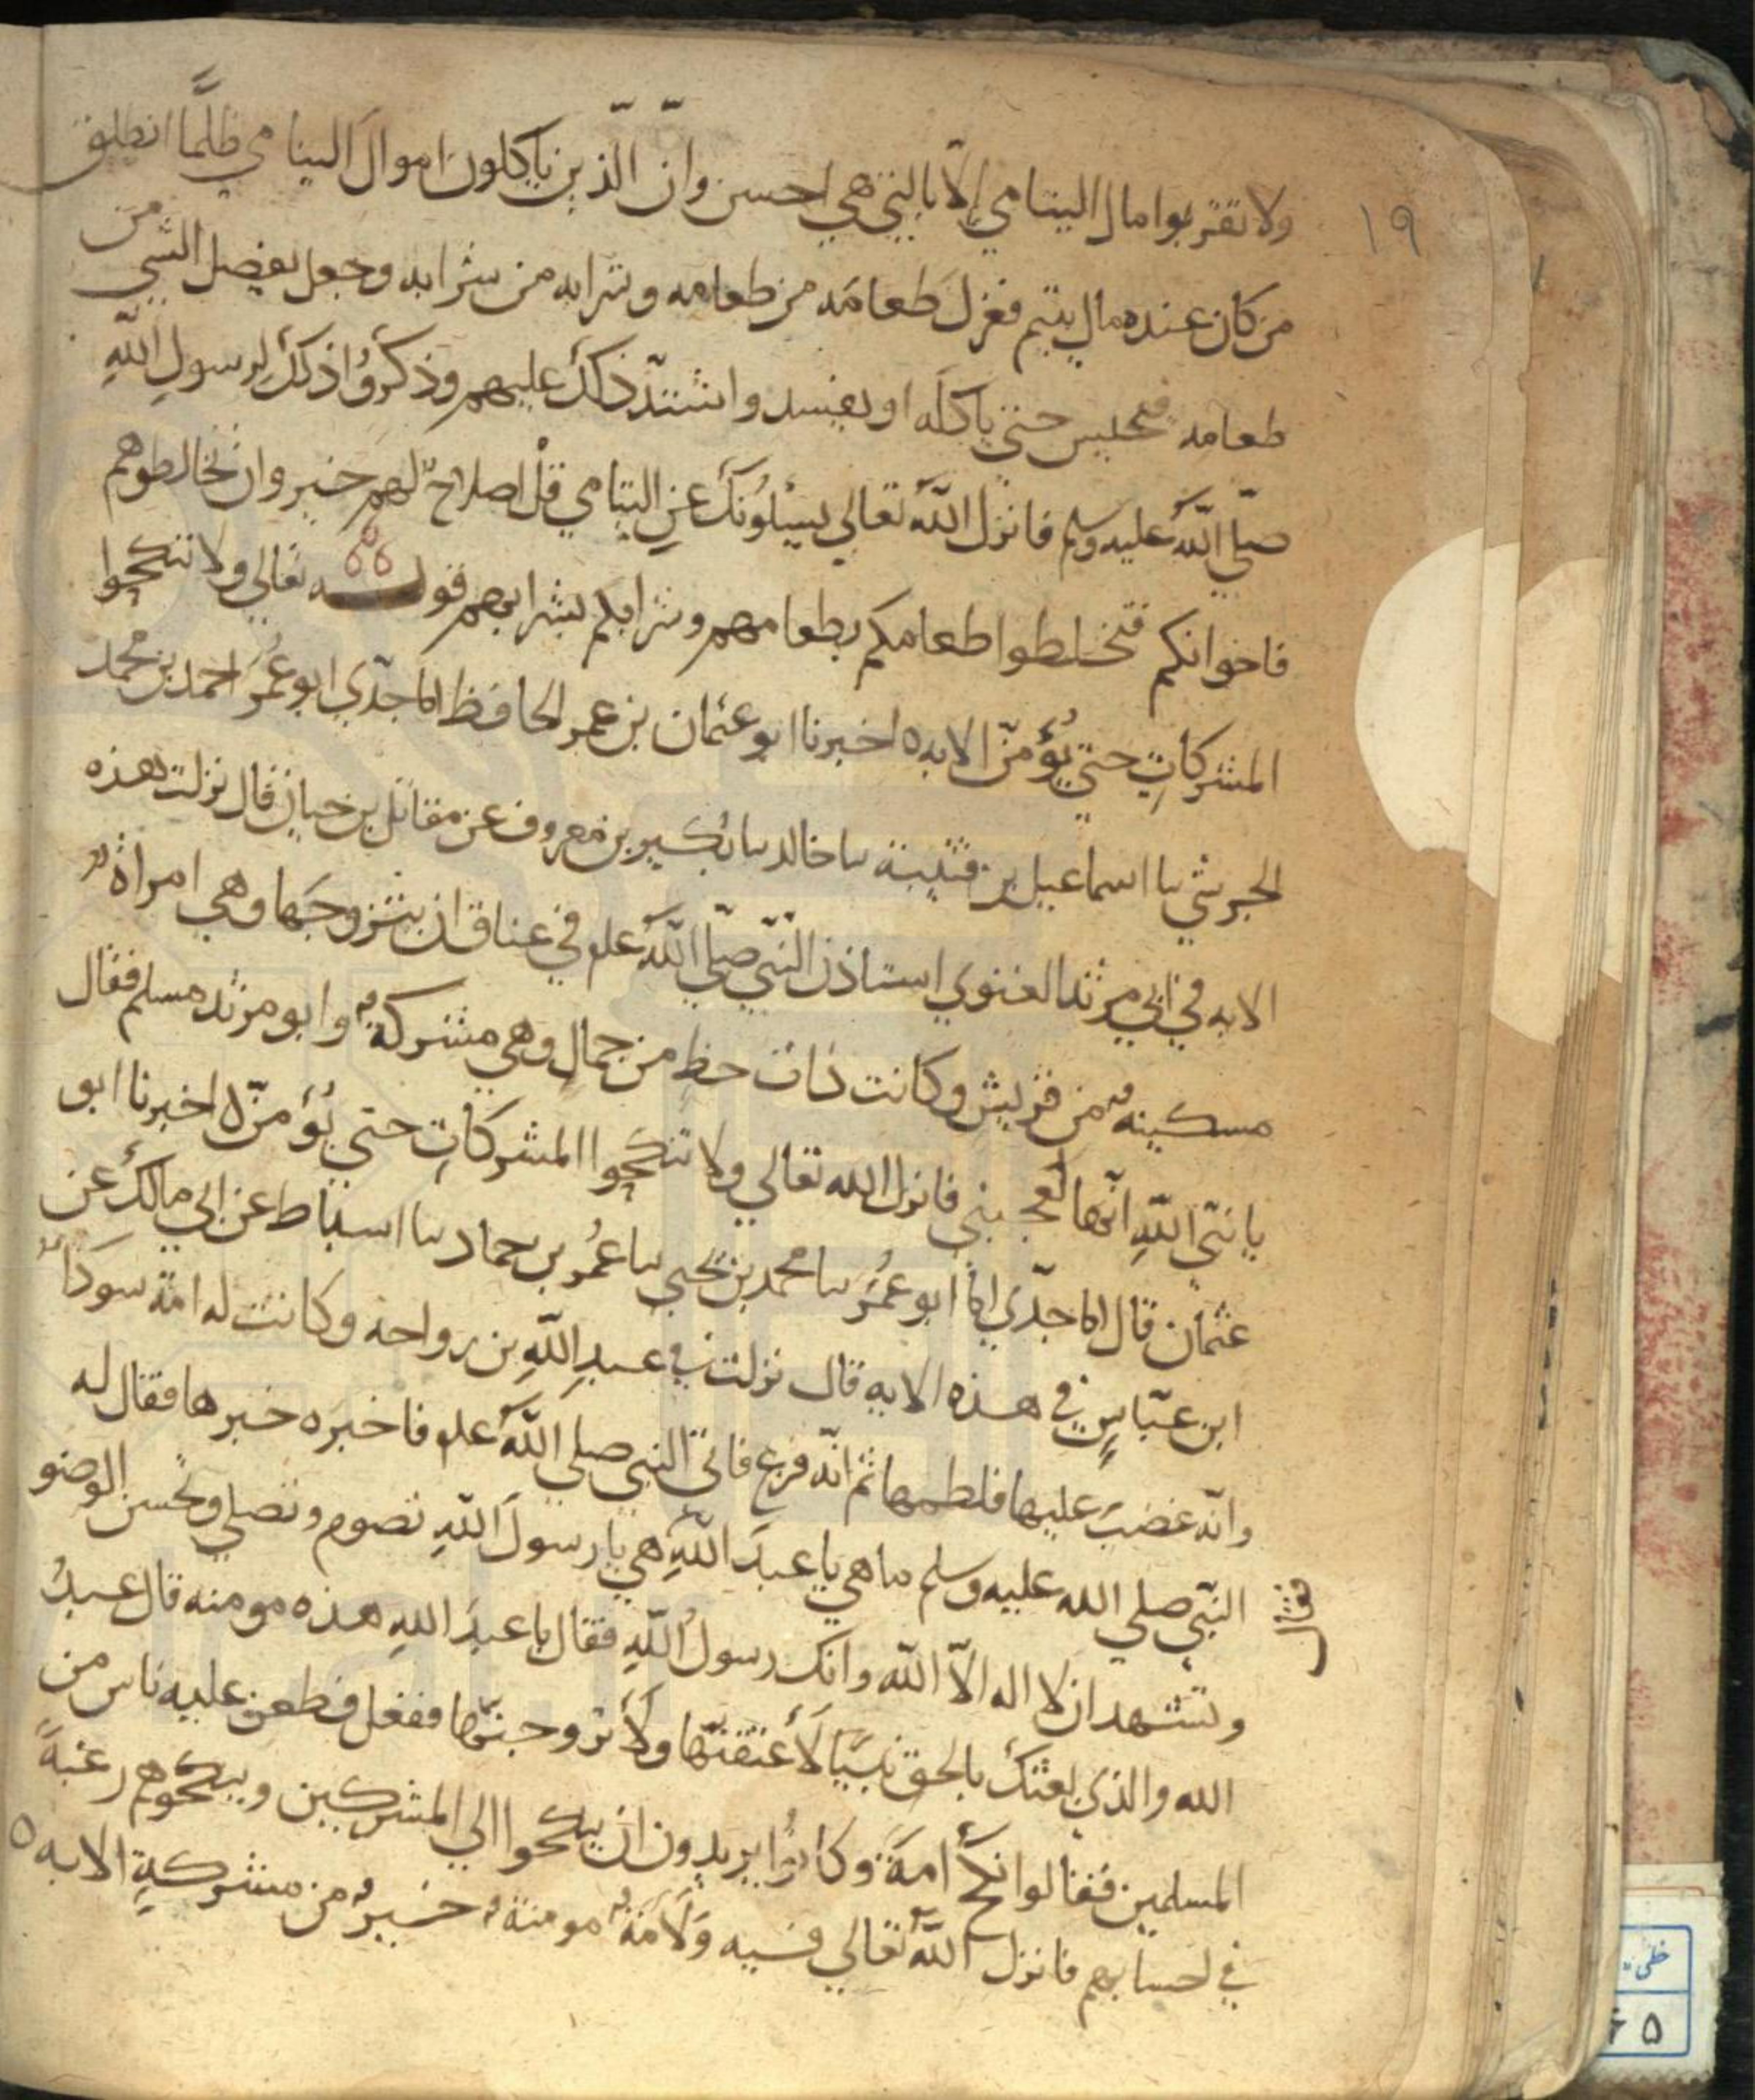 ١٩
ولا تقربوا مال اليتامي إلّا بالتي هي احسن وانّ الّذين ياكلون اموال اليتامي ظلمًا انطلق
من كان عنده مال يتيم فعزل طعامَه من طعامه وشرابه من شرابه وجعل يفضل الشي من
طعامه فيحبس حتي ياكله او يفسد واشتدّ ذلك عليهم وذكرُوا ذلك لرسولِ اللهِ
صلّي اللهُ عليه وسلم فانزل اللهُ تعالي يسئلُونَك عنِ اليتامي قلْ اصلاحٌ لهم خير وان تخالطوهم
فاخوانكم فتخلطوا طعامكم بطعامهم وشرابكم بشرابهم قولــه تعالي ولا تنكحوا
المشركاتِ حتي يُؤمنّ الايه ٥ اخبرنا ابو عثمان بن عمر الحافظ انا جدّي ابو عُمَر احمد بن محمد
الجرشي نا اسماعيل بن قتيبة نا خالد نا بُكير بن معروف عن مقاتل بن حيان قال نزلت هذه
الايه في ابي مرثد الغنوي استاذن النّبي صلّي اللهُ علم في عناق ان يتزوجَها وهي امراةٌ
مسكينةٌ من قريش وكانت ذات حظ من جمال وهي مشركةٌ وابو مرثد مسلم فقال
يا نبّي اللهِ انّها لَتعجبني فانزل الله تعالي ولا تنكحوا المشركاتِ حتي يُؤمنّ ٥ اخبرنا ابو
عثمان قال انا جدّي انا ابو عُمَر نا محمد بن يحيي نا عمُر بن حماد نا اسباط عن ابي مالك عن
ابن عبّاسٍ في هذه الايه قال نزلت في عبدِ اللهِ بن رواحه وكانت له امةٌ سودَاُ
وانّه غضبَ عليها فلطمها ثم انّه فزع فاتي النبي صلي اللهُ علم فاخبره خبرها فقال له
النّبي صلي الله عليه وسلم ما هي يا عبدَ اللهِ هي يا رسولَ اللهِ تصوم وتصلي وتحسن الوضو
فقال
وتشهد ان لا اله الّا الله وانك رسولُ اللهِ فقال يا عبدَ اللهِ هذه مومنه قال عبدُ
الله والذي بعثكَ بالحق نبيًّا لَأعتقنّها ولَأتزوجنّها ففعل فطعن عليه ناس من
المسلمين فقالوا نكحَ أمةً وكانُوا يريدون ان ينكحوا الي المشركين وينكحوهم رغبةً
في احسابهم فانزل اللهُ تعالي فيه ولَامَةٌ مومنةٌ خيرٌ من مشركةٍ الايه ٥
خطی